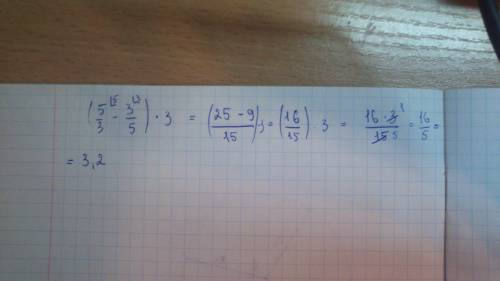 (5/3 ⁽⁵ - 3/5 ⁽³) · 3 = ((25 - 9)/15) · 3 = (16/15) · 3 = (16 · 3 ¹)/(15 5) = 16/5 =
= 3,2